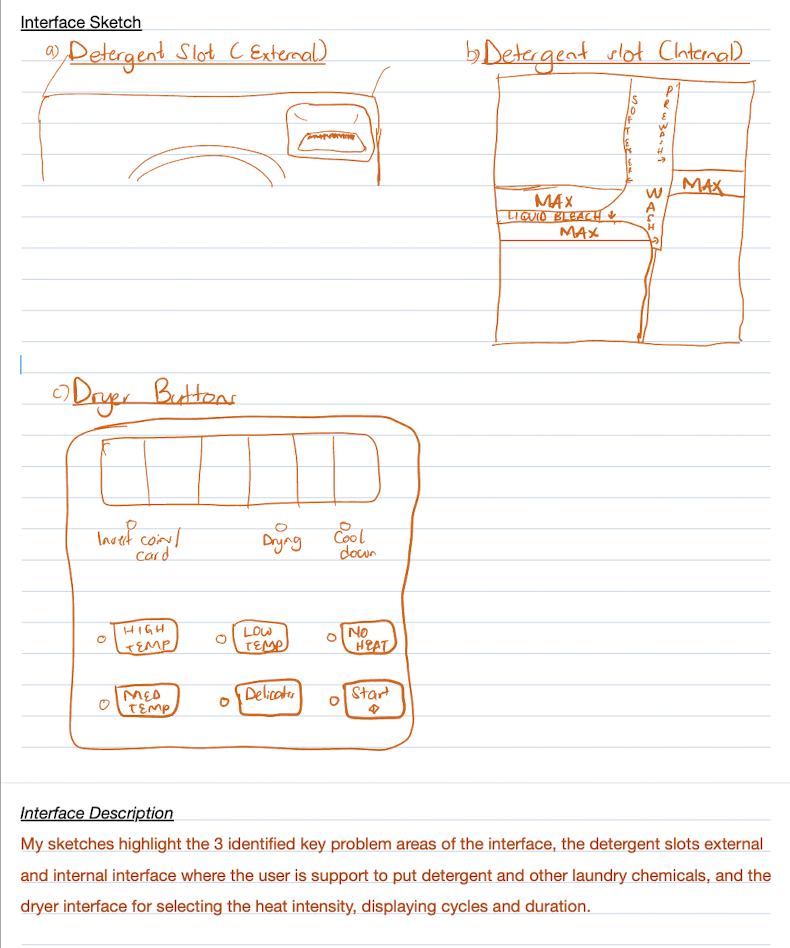 Interface Sketch
a) Detergent Slot ( External)
b) Detergent slot (Internal)
SOFTENER
PREWASH →
WASH →
MAX
MAX
LIQUID BLEACH ↓
MAX
c) Dryer Buttons
Insert coin/
card
Drying
Cool
down
HIGH
TEMP
LOW
TEMP
NO
HEAT
MED
TEMP
Delicates
Start
Interface Description
My sketches highlight the 3 identified key problem areas of the interface, the detergent slots external
and internal interface where the user is support to put detergent and other laundry chemicals, and the
dryer interface for selecting the heat intensity, displaying cycles and duration.